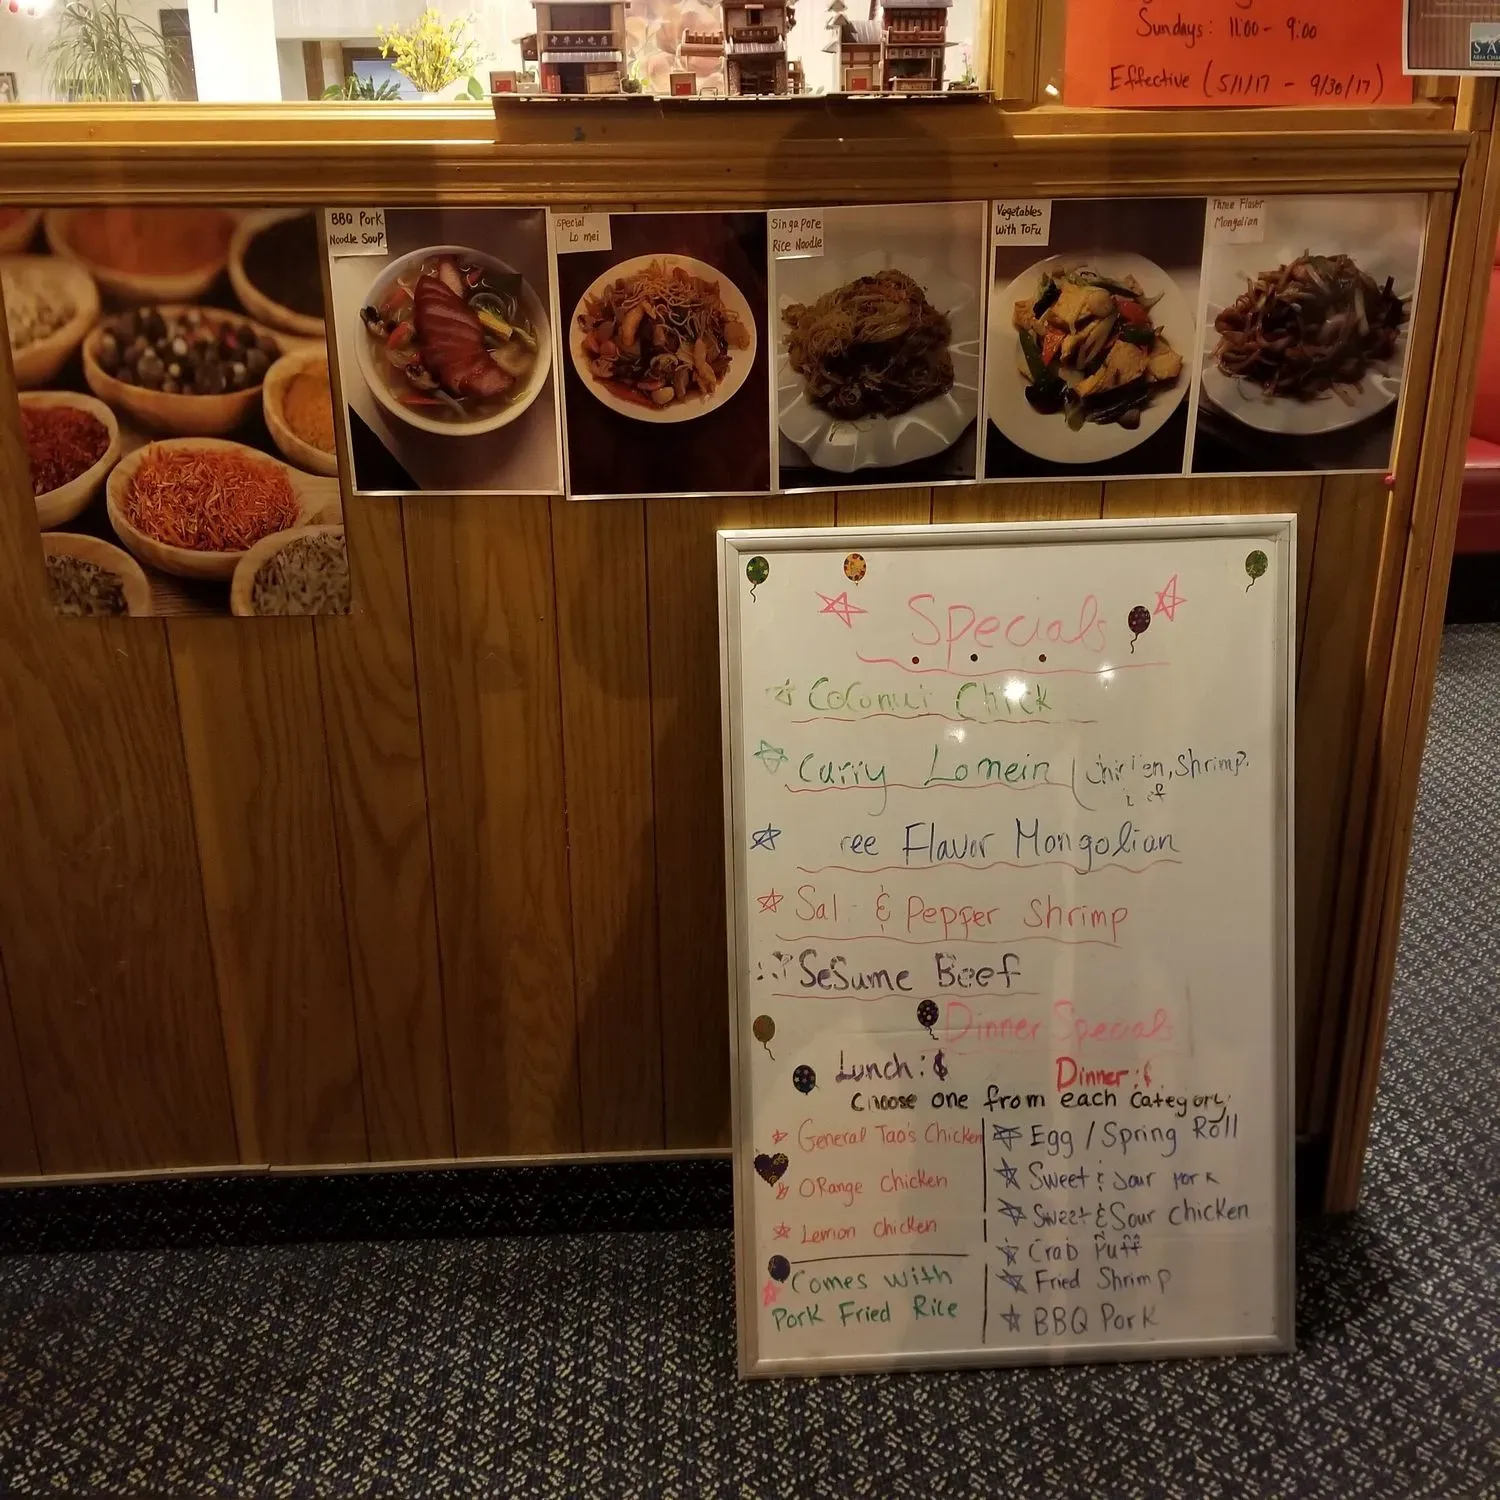 Sundays: 11:00 - 9:00
Effective (5/1/17 - 9/30/17)
BBQ Pork
Noodle Soup
Special
Lo mei
Singapore
Rice Noodle
Vegetables
With ToFu
Three Flavor
Mongolian
中华小吃店
Specials
Coconut Chick
Curry Lomein (Chicken, Shrimp.
ree Flavor Mongolian
Sal & Pepper Shrimp
SeSume Beef
Dinner Specials
Lunch: $ Dinner: $
Choose one from each Category:
General Tao's Chicken
ORange Chicken
Lemon Chicken
Comes With
Pork Fried Rice
Egg / Spring Roll
Sweet & Sour Pork
Sweet & Sour Chicken
Crab Puff
Fried Shrimp
BBQ Pork